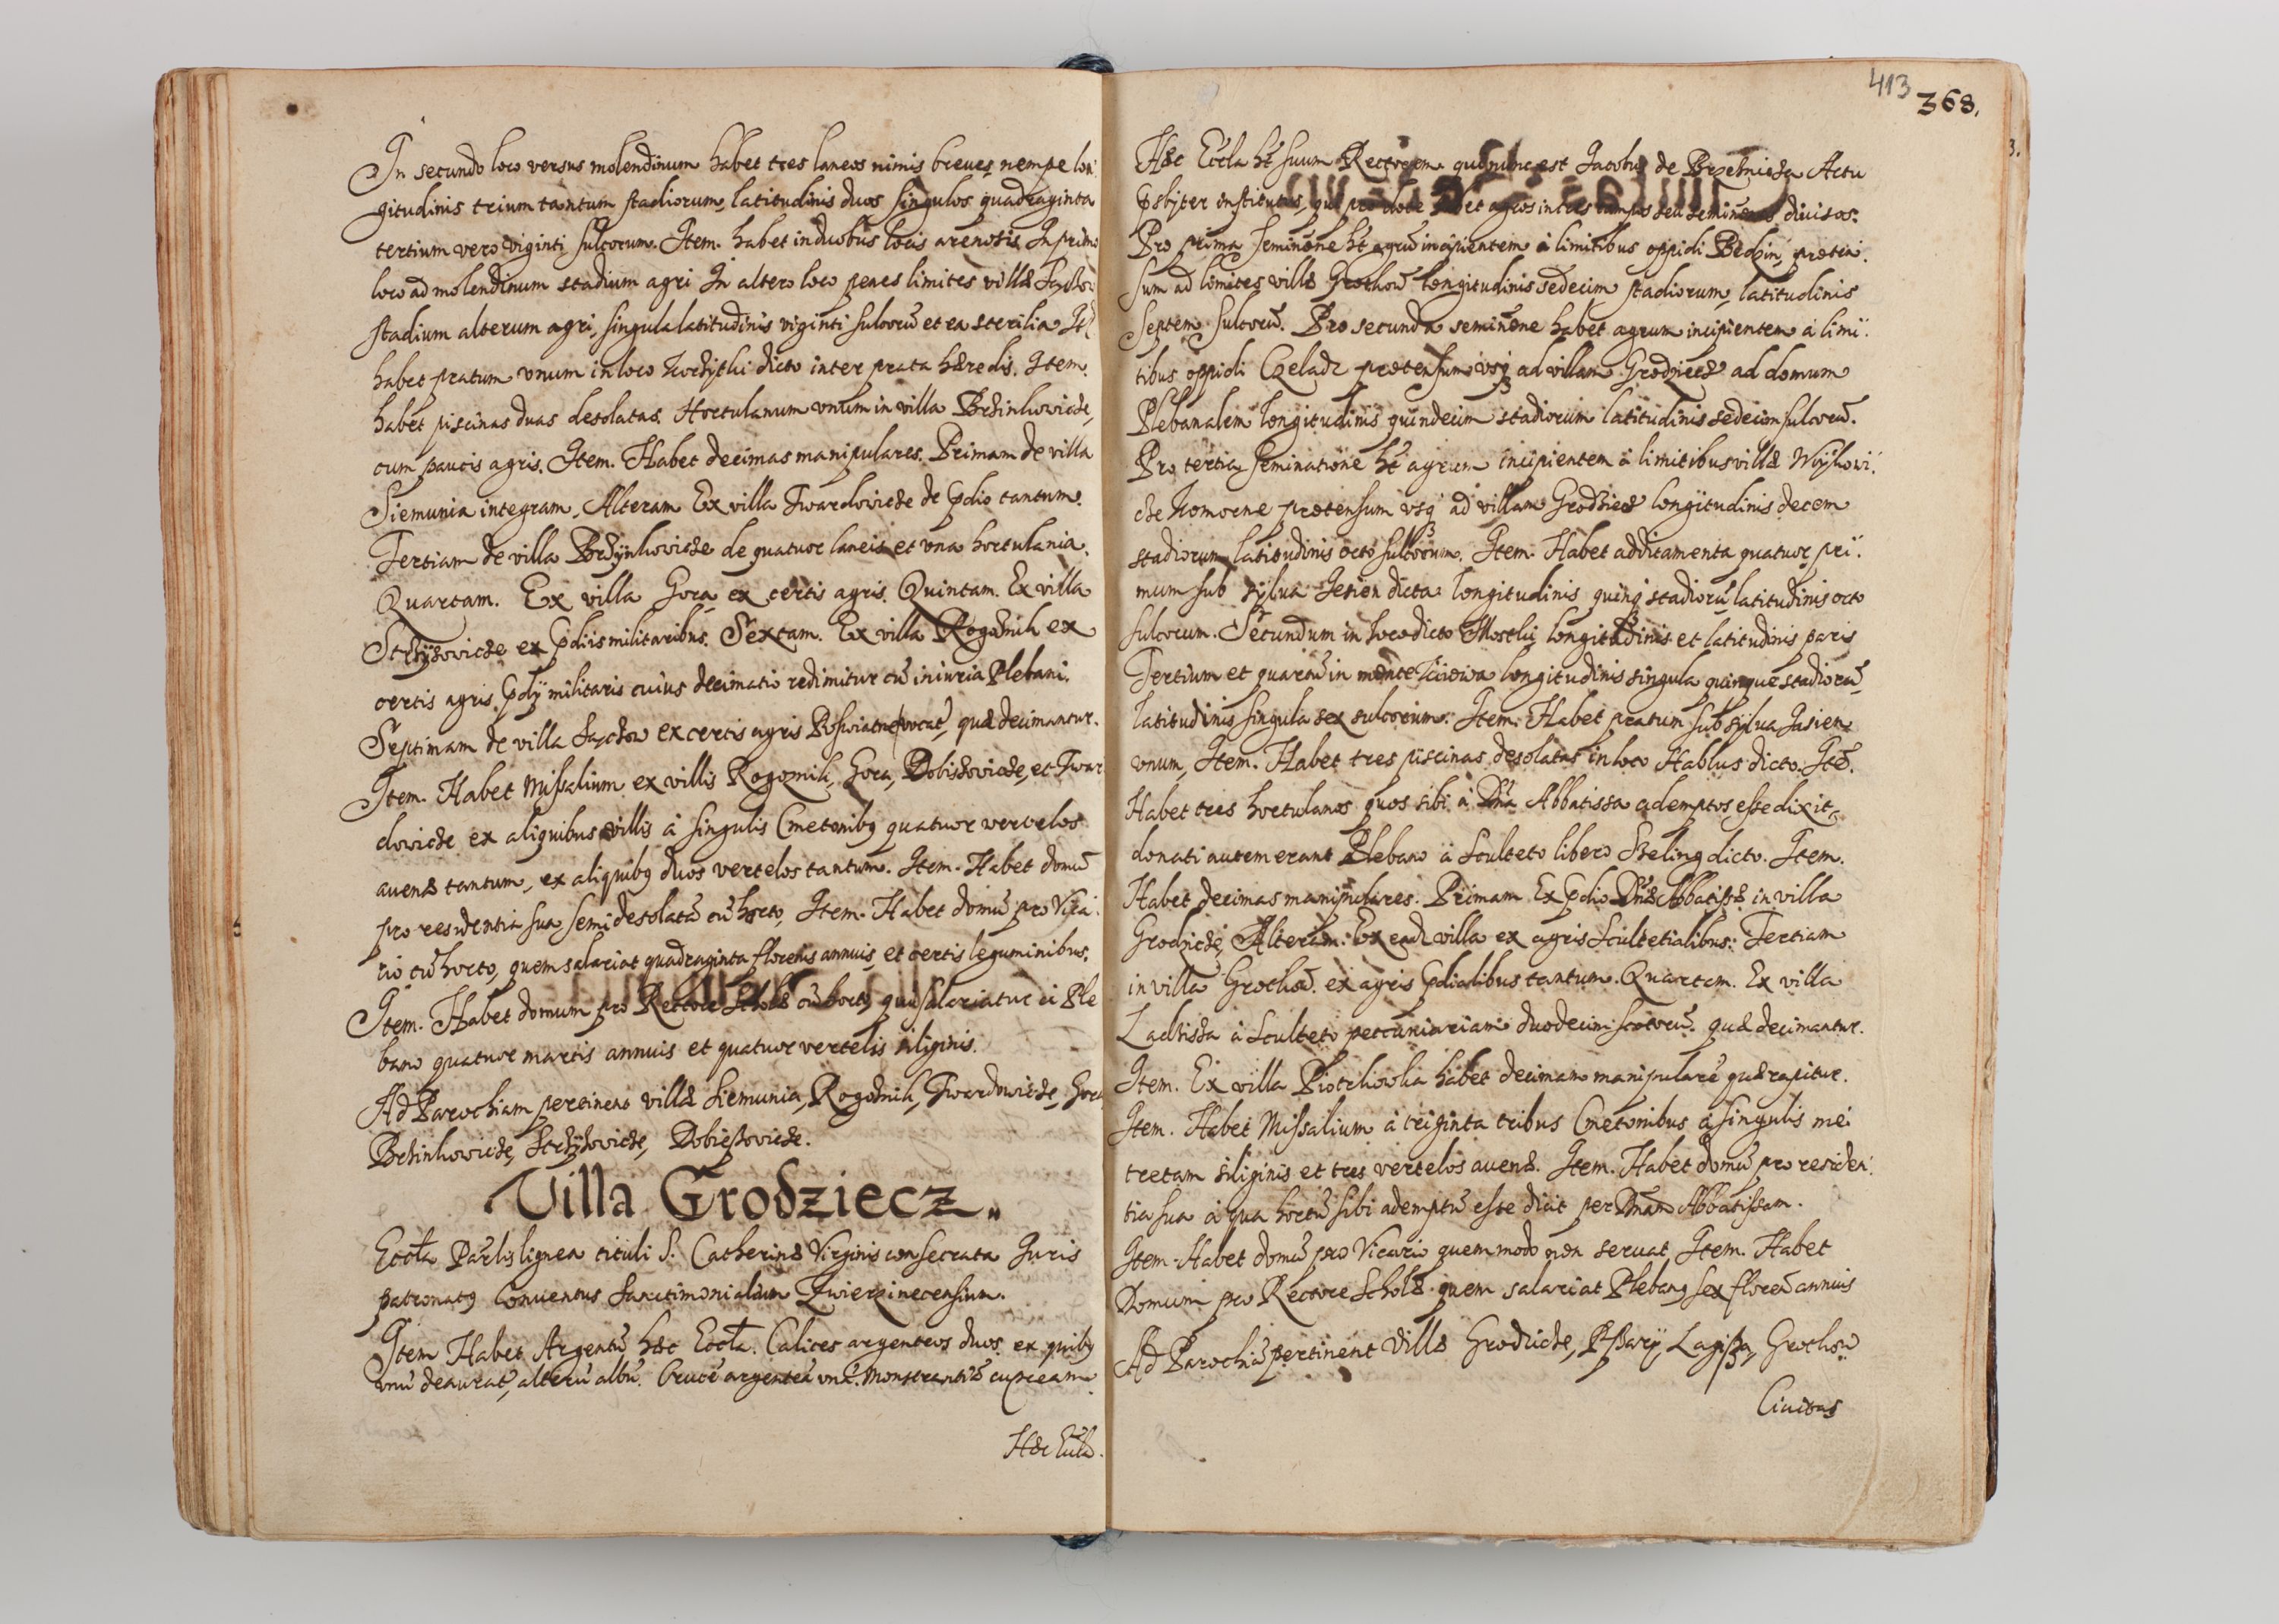 In secundo loco versus molendinum habet tres laneos nimis breues nempe lon:
gitudinis trium tantum stadiorum, latitudinis duos singulos quadraginta
tertium vero viginti sulcorum. Item. habet in duobus locis arenosis In primo
loco ad molendinum stadium agri In altero loco penes limites villæ
stadium alterum agri, singula latitudinis viginti sulcorū et ea sterilia It
habet pratum vnum in loco dicto inter prata hæredis. Item.
habet piscinas duas desolatas. Hortulanum vnum in villa Brzinkowicze,
cum paucis agris. Item. Habet decimas manipulares. Primam de villa
Siemunia integram, Alteram Ex villa Twardowicze de Prdio tantum.
Tertiam de villa Brzynkowicze de quatuor laneis et vna hortulania.
Quartam. Ex villa Gora ex certis agris. Quintam. Ex villa
Strzyżowicze ex Prdiis militaribus. Sextam. Ex villa Rogoznik ex
certis agris Prdij militaris cuius decimatio redimitur cū iniuria Plebani.
Septimam de villa Sączow ex certis agris vocat, quæ decimantur.
Item. Habet Missalium ex villis Rogoznik, Gora, Dobieszowicze, et Twar
dowicze ex aliquibus villis à singulis Cmetonibꝯ quatuor vertelos
auenæ tantum, ex aliquibꝯ duos vertelos tantum. Item. Habet domū
pro residentia sua semidesolatā cū horto, Item. Habet domū pro Vica:
rio cū horto, quem salariat quadraginta florenis annuis, et certis leguminibus.
Item. Habet domum pro Rectore Scholæ cū horto, qui salariatur à Ple
bano quatuor marcis annuis et quatuor vertelis siliginis.
Ad Parochiam pertinent villæ Siemunia, Rogoznik, Twardowicze, Gora
Brzinkowicze, Strzyżowicze, Dobieszowicze.
Villa Grodziecz.
Eccła Parlis lignea tituli S. Catherinæ Virginis consecrata Iuris
patronatꝯ Conuentus Sanctimonialium Zwierzinecensium.
Item Habet Argentū hæc Eccła. Calices argenteos duos ex quibꝯ
vnū deaurat, alterū albū. Crucē argenteā vnā. Monstrantiā cupream
Hæc Eccła.
413
368.
Hæc Eccla ht suum Rectorem qui nunc est Jacobus de Brzeznicza Actu
Prsbyter institutus, qui pro dote habet agros in tres campos seu seminenes diuisos:
Pro prima seminone ht agrū incipientem à limitibus oppidi Bedzin, proten:
sum ad limites villæ Grochow longitudinis sedecim stadiorum, latitudinis
Septem sulcorū. Pro secunda seminone habet agrum incipientem à limi:
tibus oppidi Czeladz protensum vsqꝫ ad villam Grodziecz ad domum
Plebanalem longitudinis quindecim stadiorum latitudinis sedecim sulcorū.
Pro tertia seminatione ht agrum incipientem à limitibus villæ Woykowi:
cze Komorne protensum vsqꝫ ad villam Grodziecz longitudinis decem
stadiorum latitudinis octo sulcorum. Item. Habet additamenta quatuor pri:
mum sub sylua Jesion dicta: longitudinis quinqꝫ stadiorū latitudinis octo
sulcorum. Secundum in loco dicto Mostki longitudinis et latitudinis paris
Tertium et quartū in monte longitudinis singula quinque stadiorū,
latitudinis singula sex sulcorum. Item. Habet pratum sub sylua Jasien
vnum, Item. Habet tres piscinas desolatas in loco Hablus dicto. Itē.
Habet tres hortulanos quos sibi à Dna Abbatissa ademptos esse dixit,
donati autem erant Plebano à Sculteto libero Szeling dicto. Item.
Habet decimas manipulares. Primam Ex Prdio Dnæ Abbatissæ in villa
Grodzicze, Alteram. Ex ead villa ex agris Scultetialibus. Tertiam
in villa Grochow. ex agris Prdialibus tantum. Quartam. Ex villa
à Sculteto peccuniariam duodecim scotorū. quæ decimantur.
Item. Ex villa habet decimam manipularē quæ rapitur.
Item. Habet Missalium à triginta tribus Cmetonibus à singulis me:
tretam siliginis et tres vertelos auenæ. Item. Habet domū pro residen:
tia sua à qua hortū sibi ademptū esse dicit per Dnam Abbatissam.
Item. Habet domū pro Vicario quem modo non seruat Item. Habet
Domum pro Rectore Scholæ quem salariat Plebanꝯ sex florenū annuis
Ad Parochiā pertinent Villæ Grodzicze, Psary, Lagisza, Grochow
Ciuitas